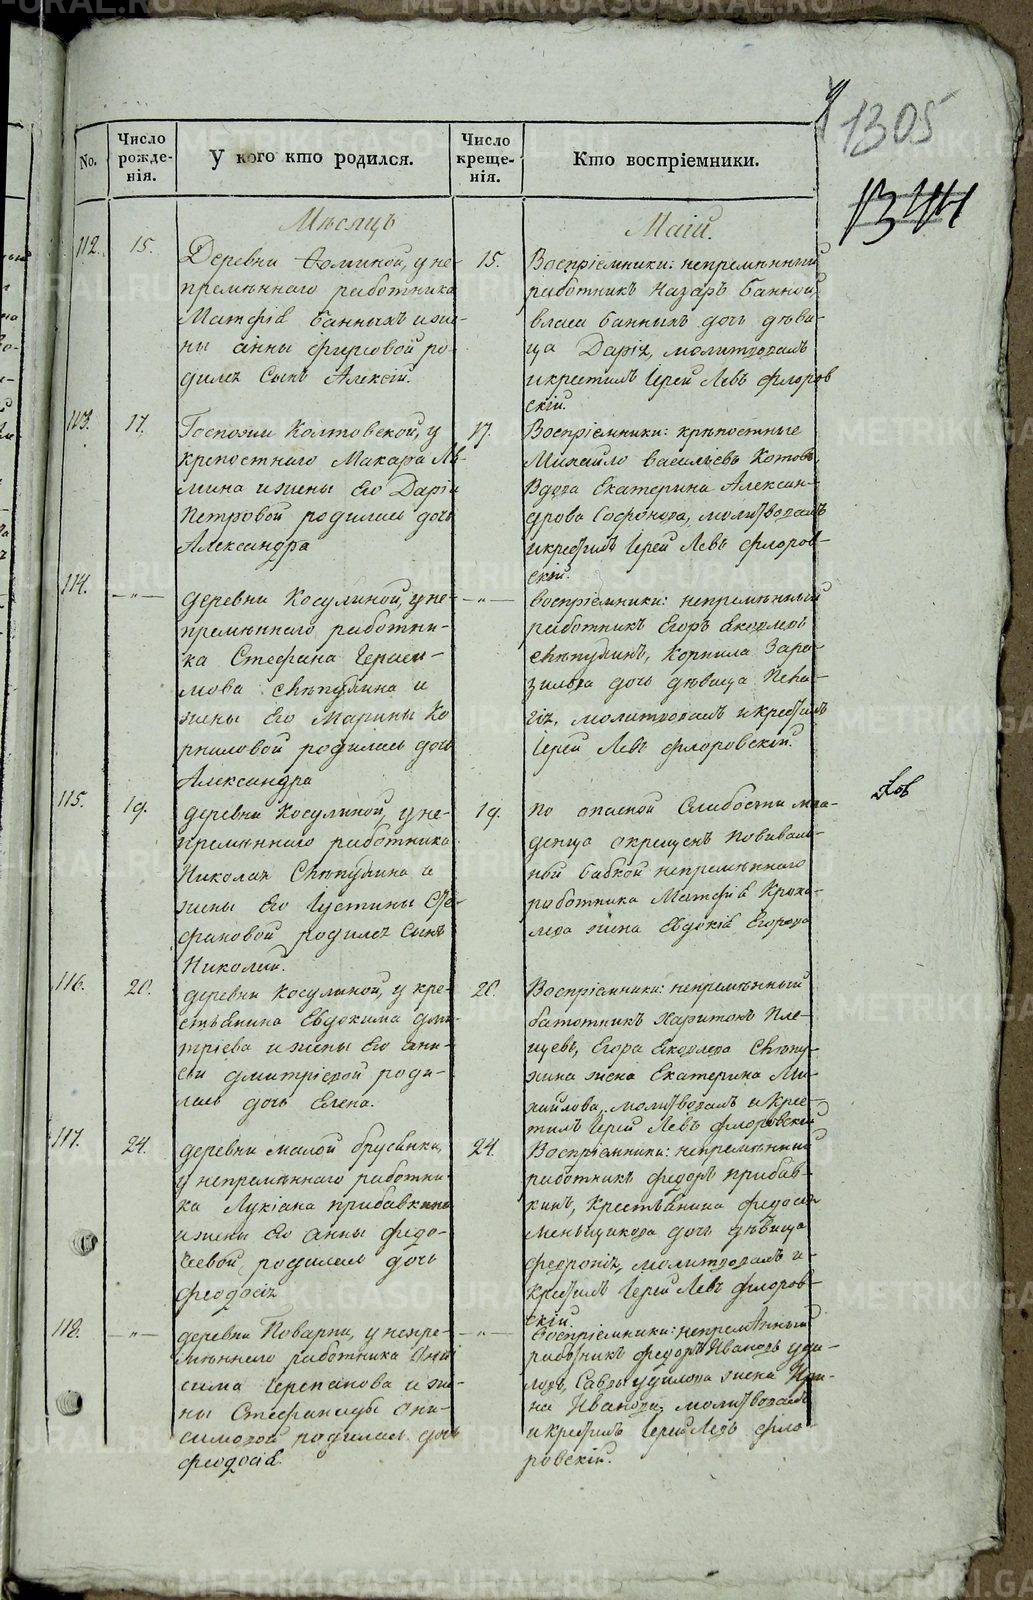 1305
1344
No.
Число рожде-нія.
У кого кто родился.
Число креще-нія.
Кто воспріемники.
Мѣсяцъ
Маій.
112.
15.
Деревни Фоминой, у не-
премѣннаго работника
Матфія Банныхъ и же-
ны Анны Фирсовой ро-
дился Сынъ Алексій.
15.
Воспріемники: непремѣнный
работникъ Назаръ Банной,
власа банныхъ дочь дѣви-
ца Дарія, молитвовалъ
и крестилъ Іерей Левъ флоров
скій.
113.
17.
Госпожи Колтовской, у
крепостнаго Макара
мина и жены Его Даріи
Петровой родилась дочь
Александра
17.
Воспріемники: крѣпостные
Михайло васильевъ Котовъ,
Вдова Екатерина Алексан-
дрова Софонова, молитвовалъ
и крестилъ Іерей Левъ флоров-
скій.
114.
—"—
деревни Косулиной, у не-
премѣннаго работни-
ка Стефана Гераси-
мова Свѣпулина и
жены Его Марины Ко
рниловой родилась дочь
Александра
—"—
воспріемники: непремѣнный
работникъ Егоръ Яковлевъ
Корнила
дочь дѣвица Пела-
гія, молитвовалъ и крестилъ
Іерей Левъ флоровскій.
115.
19.
деревни Косулиной, у не-
премѣннаго работника
Николая и
жены Его Іустины Сте-
фановой родился Сынъ
Николай.
19.
по опасной Слабости мла-
денца окрещенъ повиваль-
ной бабкой непремѣннаго
работника Матфія Кроха-
лева жена Евдокія Егорова
116.
20.
деревни Косулиной, у кре-
стьянина Евдокима дми-
тріева и жены Его Ани-
сьи дмитріевой роди-
лась дочь Елена.
20.
Воспріемники: непремѣнный
работникъ Харитонъ Пле-
щевъ, Егора Яковлева
жена Екатерина Ми-
хайлова, молитвовалъ и крес-
тилъ Іерей Левъ флоровскій
117.
24.
деревни малой брусянки,
у непремѣннаго работни-
ка Лукіана прибавкина
и жены Его Анны федо-
сеевой, родилась дочь
феодосія
24.
Воспріемники: непремѣнный
работникъ федоръ прибав-
кинъ, Крестьянина федосѣя
Меньщикова дочь дѣвица
февронія, молитвовалъ и
крестилъ Іерей Левъ флоров-
скій.
118.
—"—
деревни Поварни, у непре-
мѣннаго работника Они
сима Черепанова и же-
ны Стефаниды Они-
симовой родилась дочь
феодосія.
—"—
воспріемники: непремѣнный
работникъ федоръ Ивановъ
Савы жена Ири-
на Иванова, молитвовалъ
и крестилъ Іерей Левъ фло
ровскій.